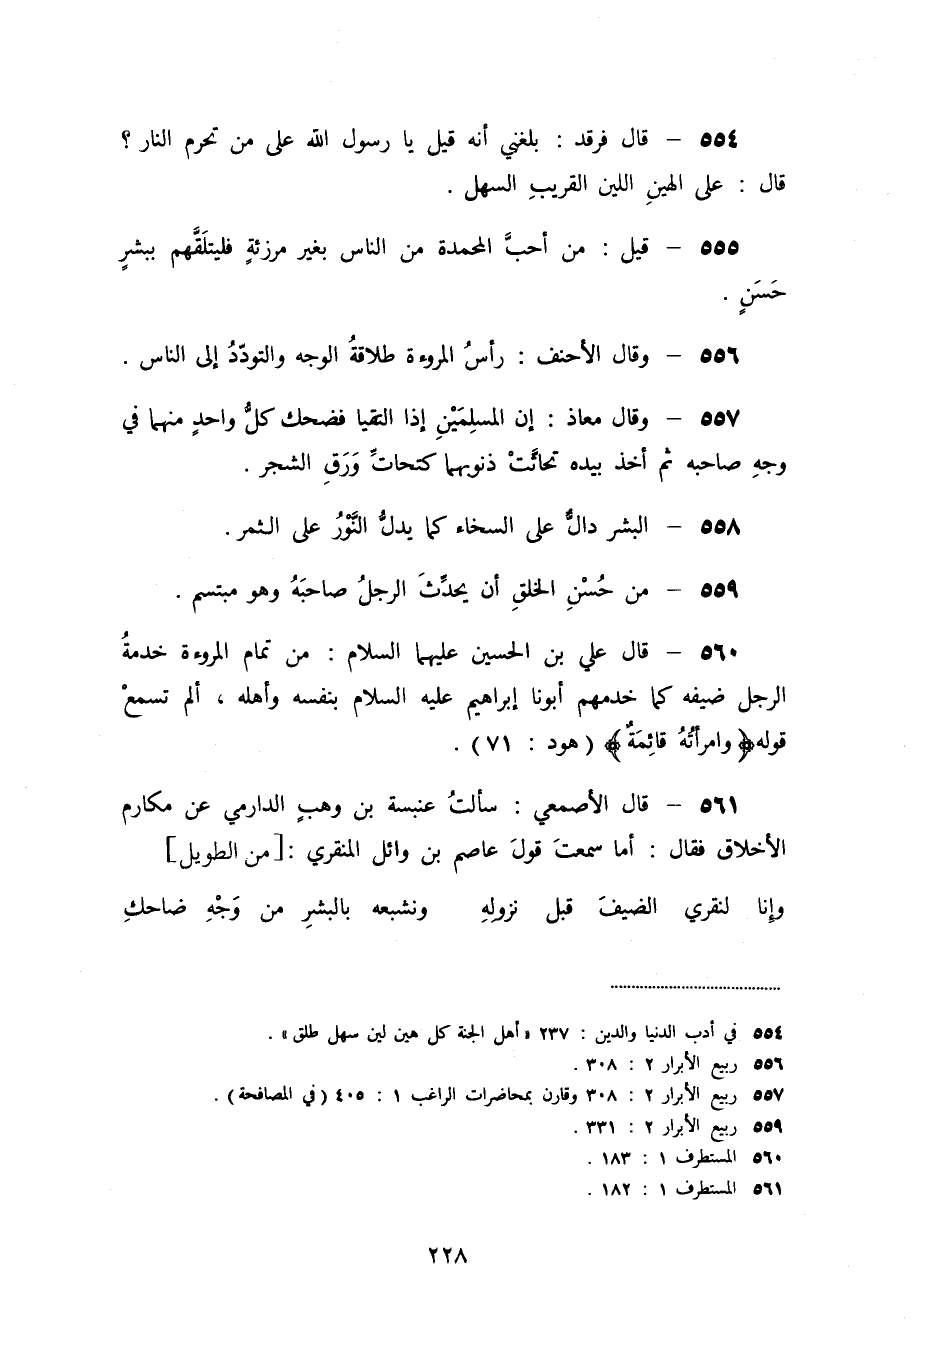 ٥٥٤ – قال فرقد : بلغني أنه قيل يا رسول الله على من تحرم النار ؟
قال : على الهينِ اللين القريبِ السهل .
٥٥٥ – قيل : من أحبَّ المحمدة من الناس بغير مرزئةٍ فليتلَقَّهم ببشرٍ
حَسَنٍ .
٥٥٦ – وقال الأحنف : رأسُ المروءة طلاقةُ الوجه والتودّدُ إلى الناس .
٥٥٧ – وقال معاذ : إن المسلِمَيْنِ إذا التقيا فضحك كلُّ واحدٍ منهما في
وجهِ صاحبه ثم أخذ بيده تحاتَّتْ ذنوبهما كتحاتِّ وَرَقِ الشجر .
٥٥٨ – البشر دالٌّ على السخاء كما يدلُّ النَّوْرُ على الثمر .
٥٥٩ – من حُسْنِ الخلقِ أن يحدِّثَ الرجلُ صاحبَهُ وهو مبتسم .
٥٦٠ – قال علي بن الحسين عليهما السلام : من تمام المروءة خدمةُ
الرجل ضيفه كما خدمهم أبونا إبراهيم عليه السلام بنفسه وأهله ، ألم تسمعْ
قوله ﴿وامرأتُهُ قائِمَةٌ﴾ (هود : ٧١) .
٥٦١ – قال الأصمعي : سألتُ عنبسة بن وهبٍ الدارمي عن مكارم
الأخلاق فقال : أما سمعتَ قولَ عاصم بن وائل المنقري : [من الطويل]
وإنا لنقري الضيفَ قبل نزولِهِ ونشبعه بالبشرِ من وَجْهِ ضاحكِ
٥٥٤ في أدب الدنيا والدين : ٢٣٧ «أهل الجنة كل هين لين سهل طلق» .
٥٥٦ ربيع الأبرار ٢ : ٣٠٨ .
٥٥٧ ربيع الأبرار ٢ : ٣٠٨ وقارن بمحاضرات الراغب ١ : ٤٠٥ (في المصافحة) .
٥٥٩ ربيع الأبرار ٢ : ٣٣١ .
٥٦٠ المستطرف ١ : ١٨٣ .
٥٦١ المستطرف ١ : ١٨٢ .
٢٢٨